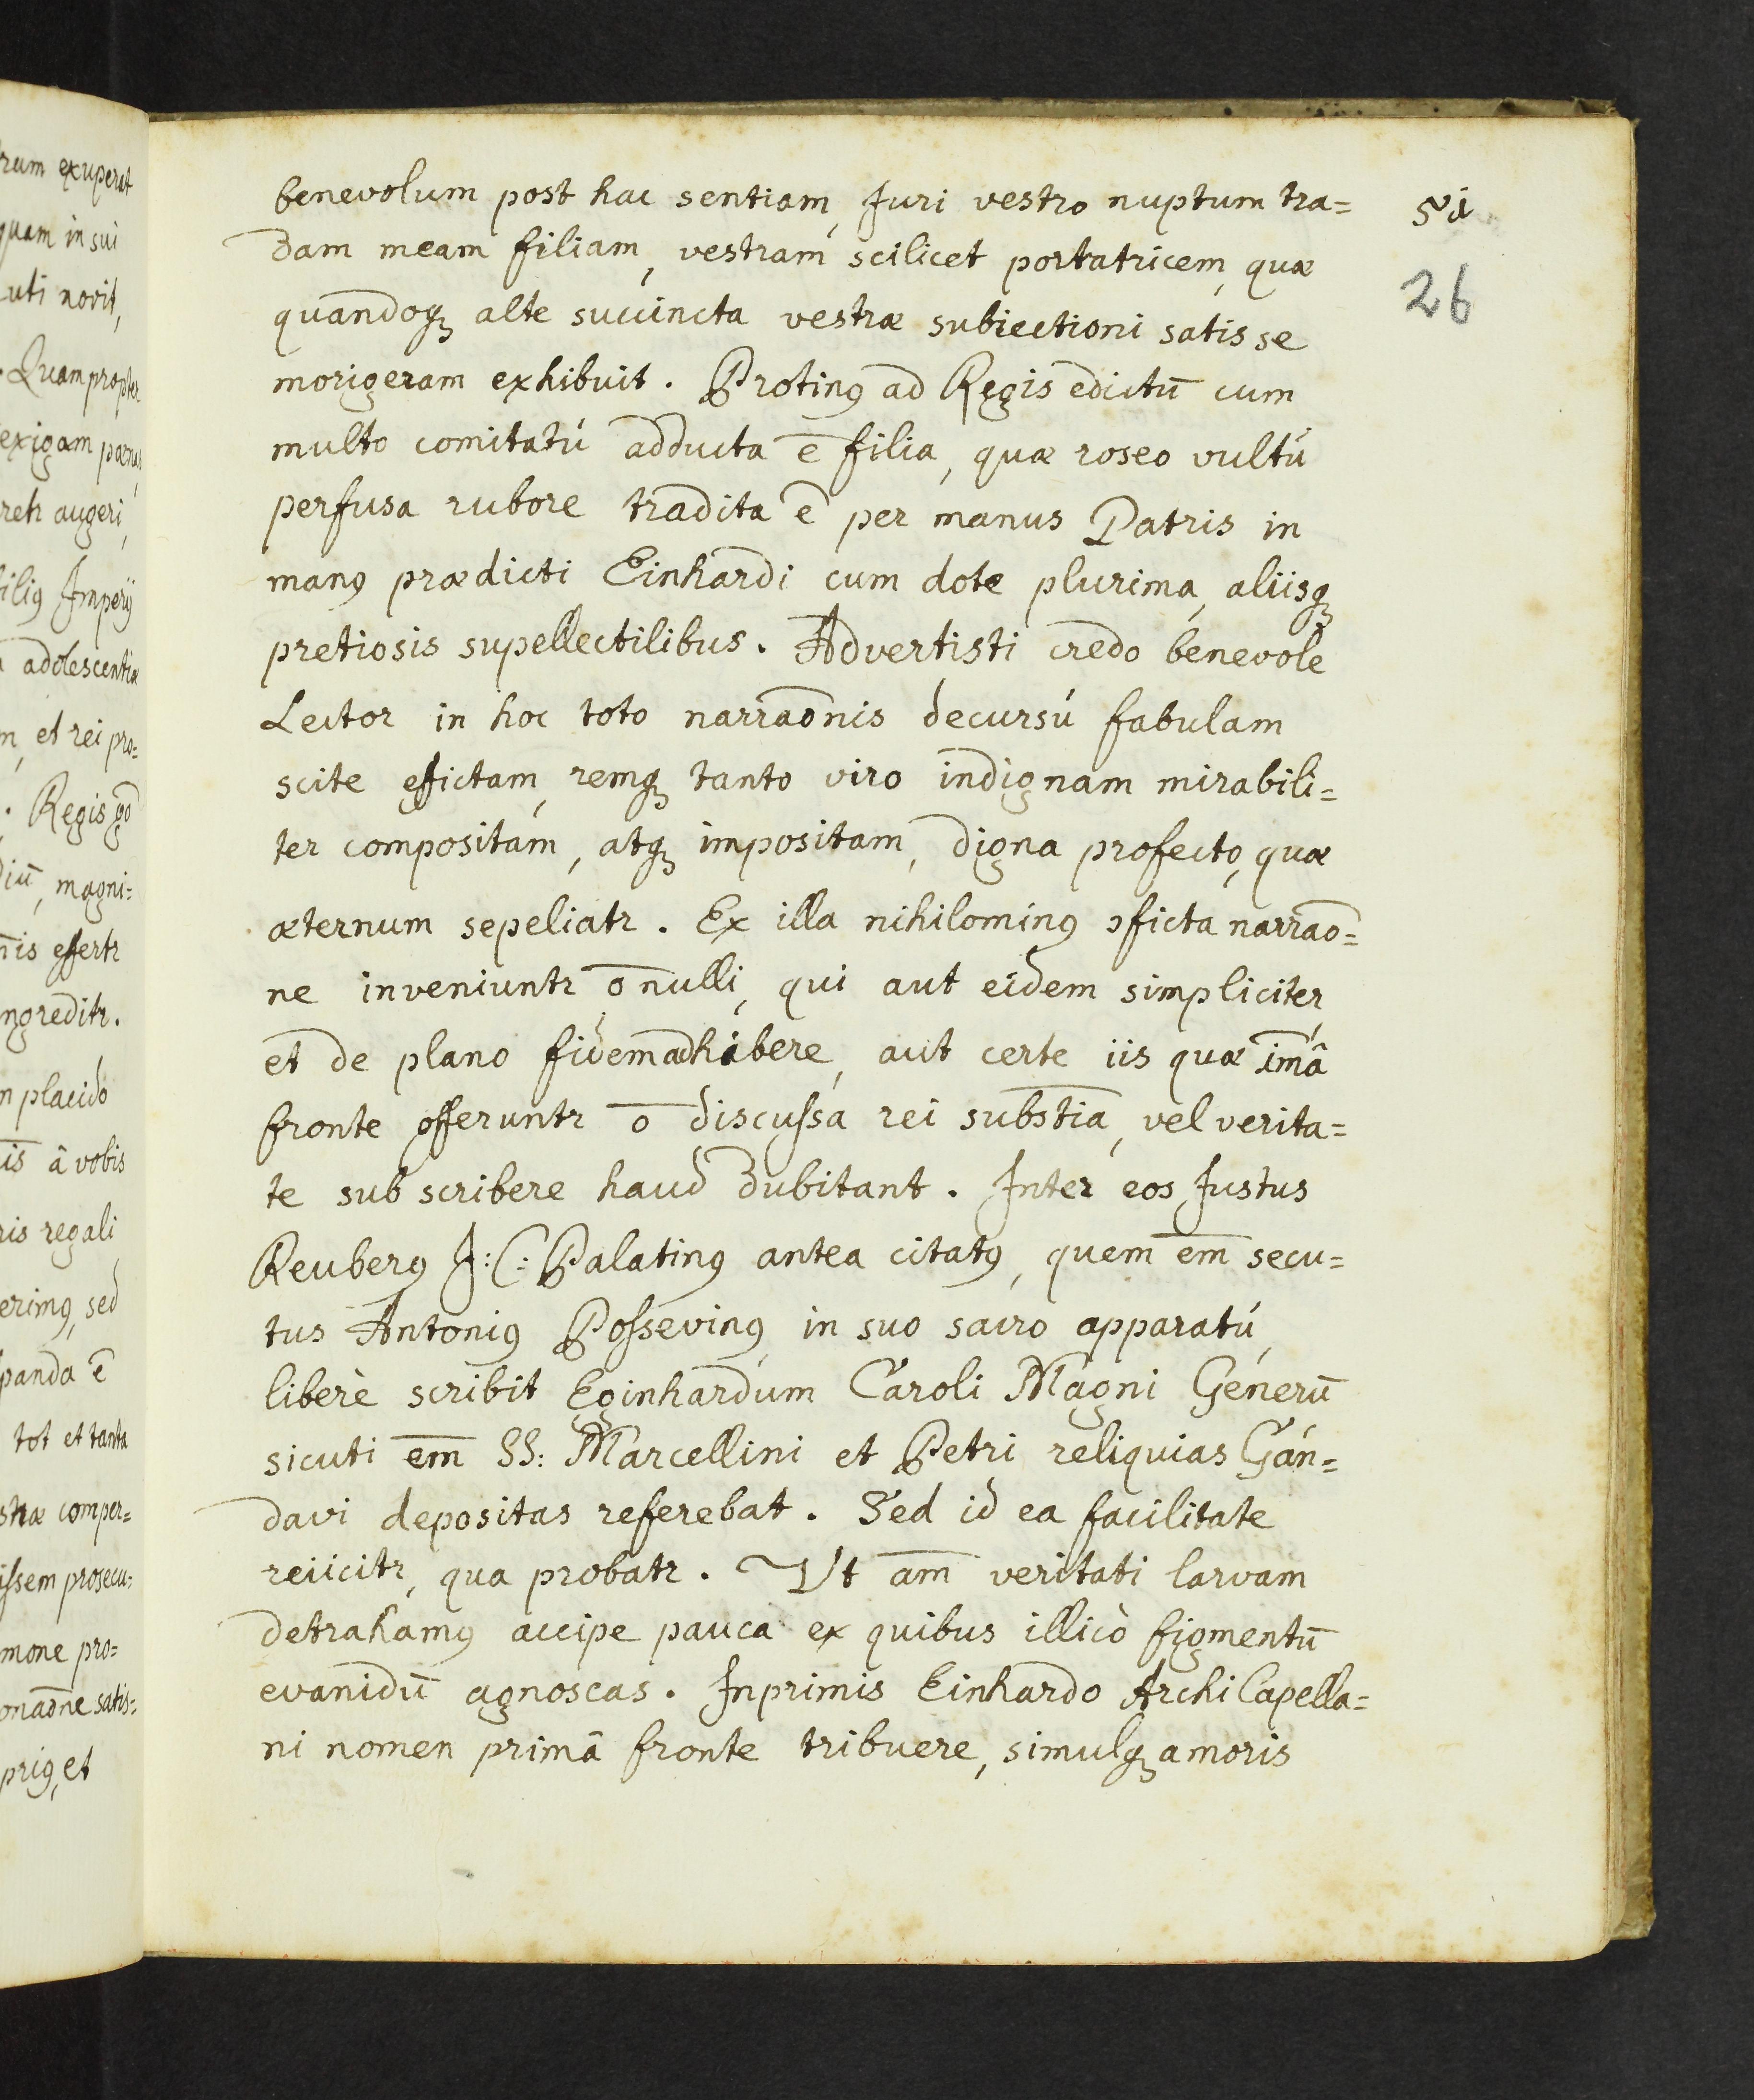 rum exuperat
quam in sui
uti novit,
. Quam propter
exigam pœnas,
retr augeri,
filiꝯ Imperij
adolescentiæ
m, et rei pro=
. Regis
diū, magni=
nis effertr
ngreditr.
n placido
is â vobis
ris regali
erimꝯ, sed
panda ē
tot et tanta
stræ comper=
issem prosecu=
mone pro=
satis=
priꝯ, et
benevolum post hac sentiam, Juri vestro nuptum tra=
dam meam filiam, vestram scilicet portatricem, quæ
quandoqꝫ alte succincta vestræ subiectioni satis se
morigeram exhibuit. Protinꝯ ad Regis edictū cum
multo comitatú adducta ē filia, quæ roseo vultú
perfusa rubore tradita ē per manus Patris in
manꝯ prædicti Einhardi cum dote plurima, aliisqꝫ
pretiosis supellectilibus. Advertisti credo benevole
Lector in hoc toto narraōnis decursú fabulam
scite effictam, remqꝫ tanto viro indignam mirabili=
ter compositam, atqꝫ impositam, digna profecto, quæ
æternum sepeliatr. Ex illa nihilominꝯ ɔficta narraō=
ne inveniuntr ōnulli, qui aut eidem simpliciter,
et de plano fidem adhibere, aut certe iis quæ imâ
fronte offeruntr ō discuſsa rei substīa, vel verita=
te subscribere haud dubitant. Inter eos Justus
Reuberꝯ J:C: Palatinꝯ antea citatꝯ, quem em̄ secu=
tus Antoniꝯ Poſsevinꝯ in suo sacro apparatú,
liberè scribit Eginhardum Caroli Magni Generū
sicuti em̄ SS: Marcellini et Petri reliquias Gan=
davi depositas referebat. Sed id ea facilitate
reiicitr, qua probatr. Vt am̄ veritati larvam
detrahamꝯ accipe pauca ex quibus illicò figmentū
evanidū agnoscas. Inprimis Einhardo ArchiCapella=
ni nomen primâ fronte tribuere, simulqꝫ amoris
26